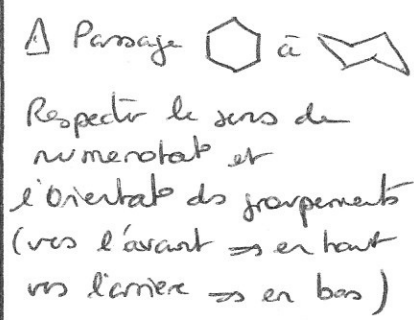 ⚠ Passage à
Respecter le sens de
numérotat° et
l'orientat° ds groupements
(vers l'avant => en haut
vers l'arrière => en bas)